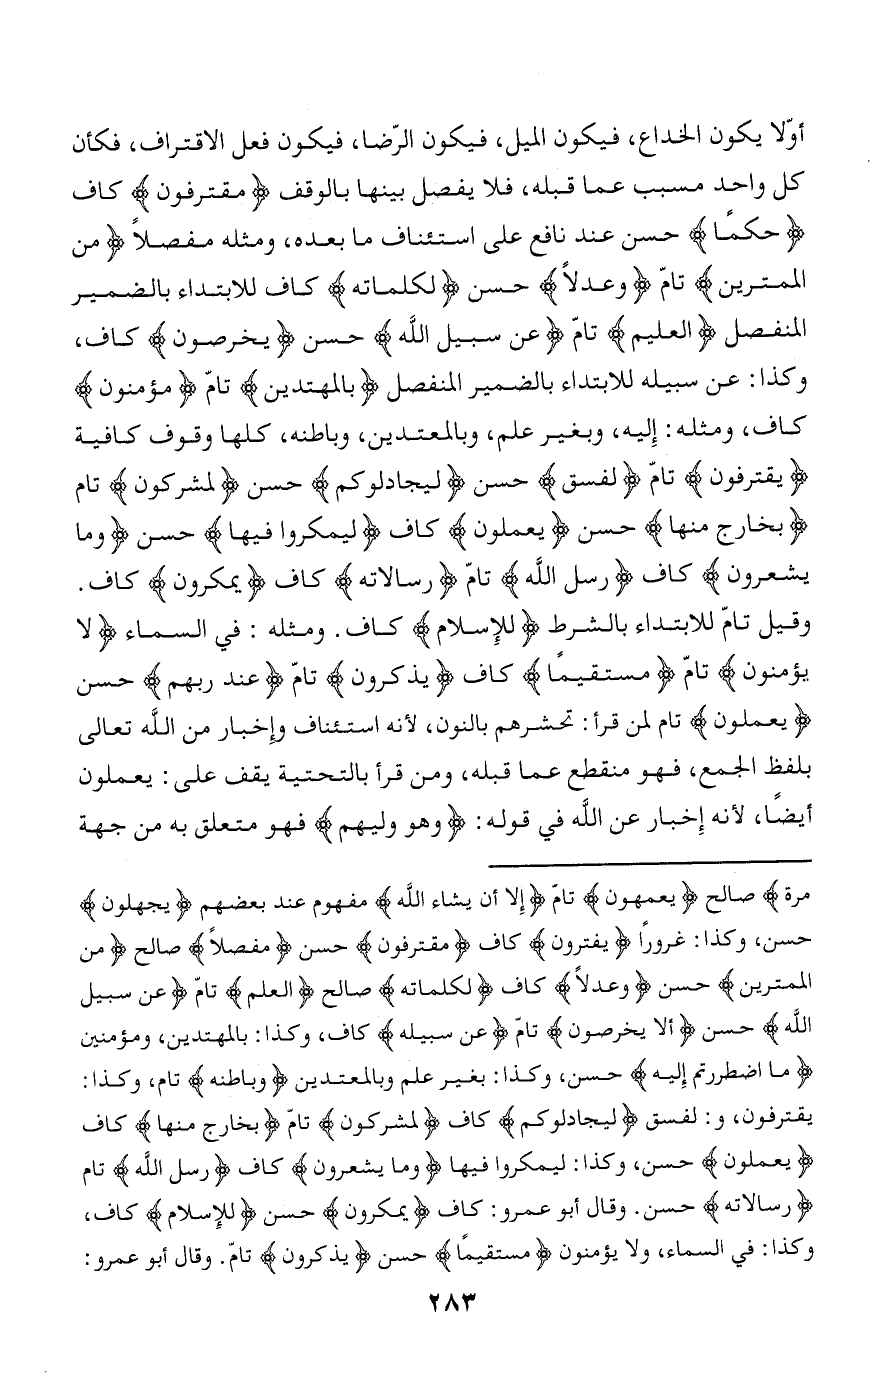 أوّلا يكون الخداع، فيكون الميل، فيكون الرّضا، فيكون فعل الاقتراف، فكأن
كل واحد مسبب عما قبله، فلا يفصل بينها بالوقف ﴿مقترفون﴾ كاف
﴿حكمًا﴾ حسن عند نافع على استئناف ما بعده، ومثله مفصلاً ﴿من
الممترين﴾ تامّ ﴿وعدلاً﴾ حسن ﴿لكلماته﴾ كاف للابتداء بالضمير
المنفصل ﴿العليم﴾ تامّ ﴿عن سبيل اللَّه﴾ حسن ﴿يخرصون﴾ كاف،
وكذا: عن سبيله للابتداء بالضمير المنفصل ﴿بالمهتدين﴾ تامّ ﴿مؤمنون﴾
كاف، ومثله: إليه، وبغير علم، وبالمعتدين، وباطنه، كلها وقوف كافية
﴿يقترفون﴾ تامّ ﴿لفسق﴾ حسن ﴿ليجادلوكم﴾ حسن ﴿لمشركون﴾ تام
﴿بخارج منها﴾ حسن ﴿يعملون﴾ كاف ﴿ليمكروا فيها﴾ حسن ﴿وما
يشعرون﴾ كاف ﴿رسل اللَّه﴾ تامّ ﴿رسالاته﴾ كاف ﴿يمكرون﴾ كاف.
وقيل تامّ للابتداء بالشرط ﴿للإسلام﴾ كاف. ومثله : في السماء ﴿لا
يؤمنون﴾ تامّ ﴿مستقيمًا﴾ كاف ﴿يذكرون﴾ تامّ ﴿عند ربهم﴾ حسن
﴿يعملون﴾ تام لمن قرأ: نحشرهم بالنون، لأنه استئناف وإخبار من اللَّه تعالى
بلفظ الجمع، فهو منقطع عما قبله، ومن قرأ بالتحتية يقف على: يعملون
أيضًا، لأنه إخبار عن اللَّه في قوله: ﴿وهو وليهم﴾ فهو متعلق به من جهة
مرة﴾ صالح ﴿يعمهون﴾ تامّ ﴿إلا أن يشاء اللَّه﴾ مفهوم عند بعضهم ﴿يجهلون﴾
حسن، وكذا: غرورًا ﴿يفترون﴾ كاف ﴿مقترفون﴾ حسن ﴿مفصلاً﴾ صالح ﴿من
الممترين﴾ حسن ﴿وعدلاً﴾ كاف ﴿لكلماته﴾ صالح ﴿العلم﴾ تامّ ﴿عن سبيل
اللَّه﴾ حسن ﴿ألا يخرصون﴾ تامّ ﴿عن سبيله﴾ كاف، وكذا: بالمهتدين، ومؤمنين
﴿ما اضطررتم إليه﴾ حسن، وكذا: بغير علم وبالمعتدين ﴿وباطنه﴾ تام، وكذا:
يقترفون، و: لفسق ﴿ليجادلوكم﴾ كاف ﴿لمشركون﴾ تامّ ﴿بخارج منها﴾ كاف
﴿يعملون﴾ حسن، وكذا: ليمكروا فيها ﴿وما يشعرون﴾ كاف ﴿رسل اللَّه﴾ تام
﴿رسالاته﴾ حسن. وقال أبو عمرو: كاف ﴿يمكرون﴾ حسن ﴿للإسلام﴾ كاف،
وكذا: في السماء، ولا يؤمنون ﴿مستقيمًا﴾ حسن ﴿يذكرون﴾ تامّ. وقال أبو عمرو:
٢٨٣